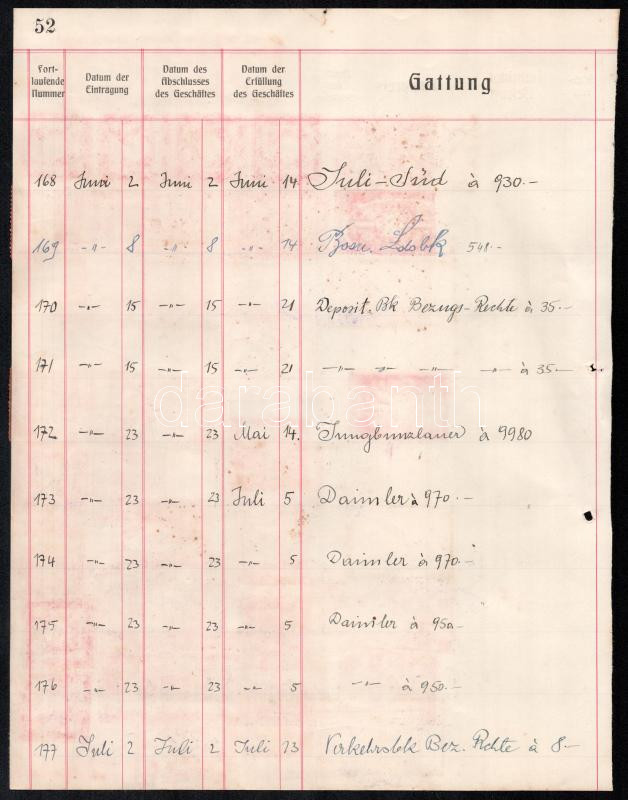 52
Fort-
laufende
Nummer
Datum der
Eintragung
Datum des
Abschlusses
des Geschäftes
Datum der
Erfüllung
des Geschäftes
Gattung
168 Juni 2 Juni 2 Juni 14 Juli-Süd à 930.-
169 -"- 8 -"- 8 -"- 14 Bosn. Ldsbk 548.-
170 -"- 15 -"- 15 -"- 21 Deposit. Bk Bezugs-Rechte à 35.-
171 -"- 15 -"- 15 -"- 21 -"- -"- -"- -"- à 35.-
172 -"- 23 -"- 23 Mai 14. Jungbunzlauer à 9980
173 -"- 23 -"- 23 Juli 5 Daimler à 970.-
174 -"- 23 -"- 23 -"- 5 Daimler à 970.-
175 -"- 23 -"- 23 -"- 5 Daimler à 950.-
176 -"- 23 -"- 23 -"- 5 -"- à 950.-
177 Juli 2 Juli 2 Juli 23 Verkehrsbk Bez. Rechte à 8.-
darabanth